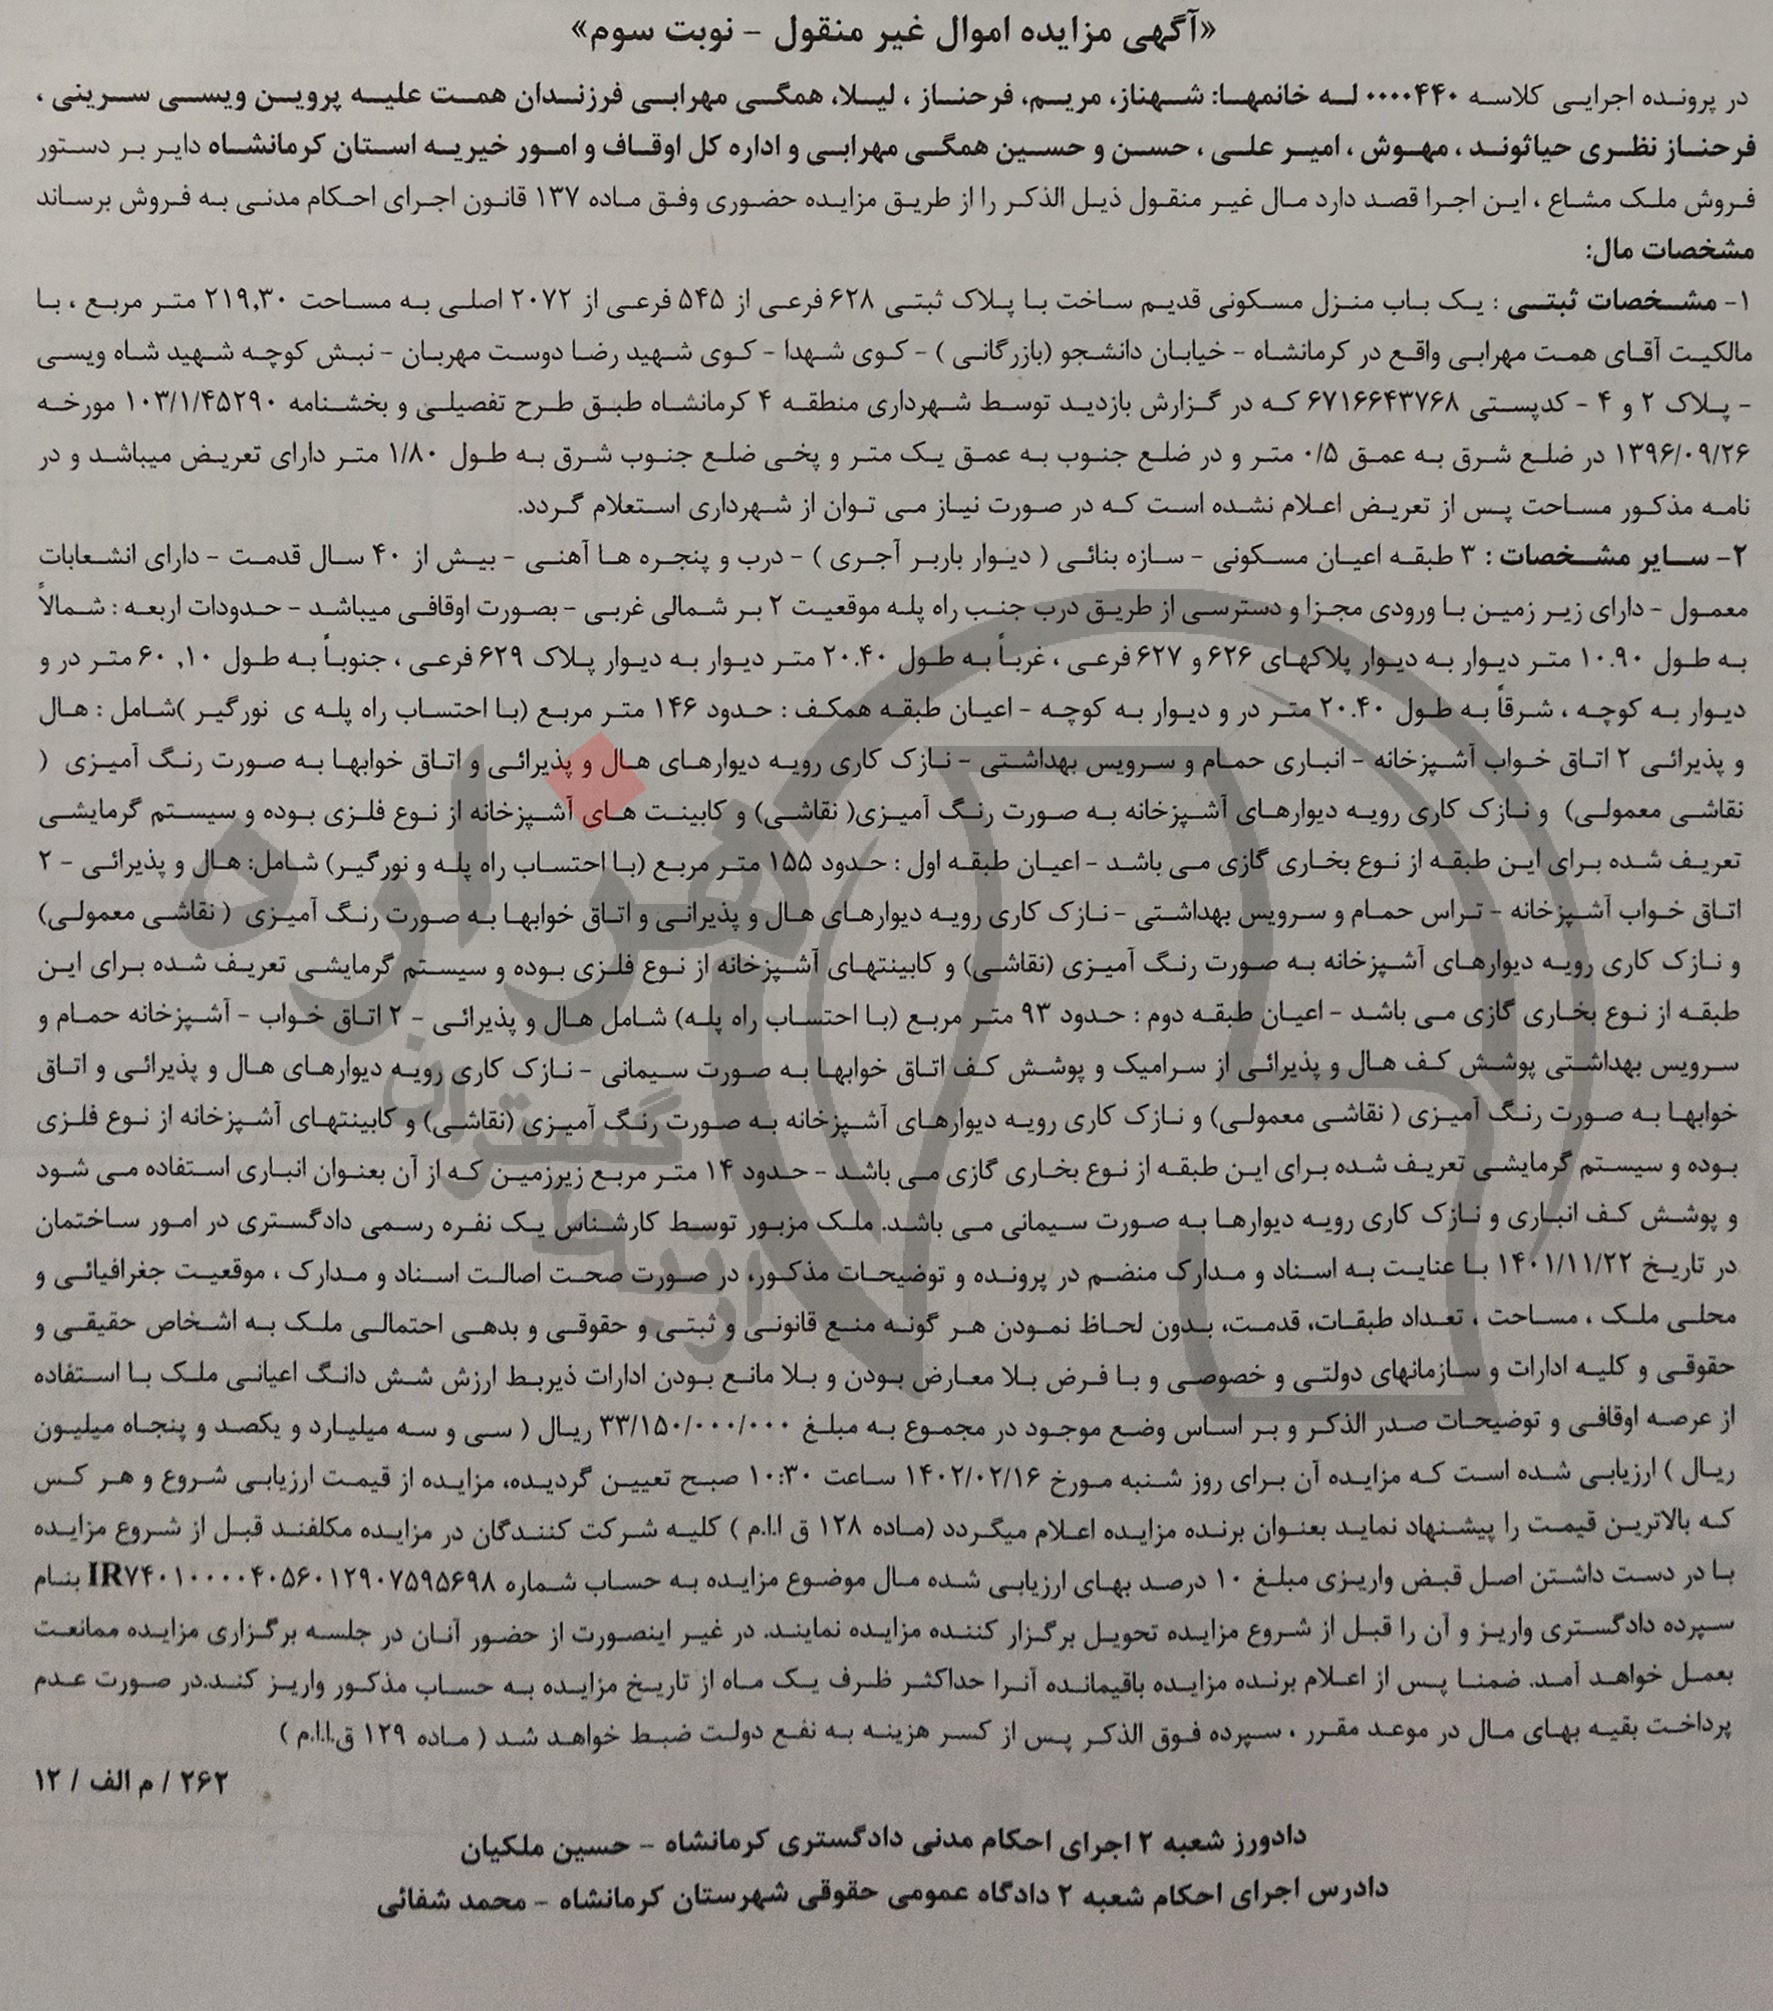 «آگهی مزایده اموال غیر منقول - نوبت سوم»
در پرونده اجرایی کلاسه ۰۰۰۰۴۴۰ له خانمها: شهناز، مریم، فرحناز ، لیلا، همگی مهرابی فرزندان همت علیه پروین ویسی سرینی ،
فرحناز نظری حیاثوند ، مهوش ، امیر علی ، حسن و حسین همگی مهرابی و اداره کل اوقاف و امور خیریه استان کرمانشاه دایر بر دستور
فروش ملک مشاع ، این اجرا قصد دارد مال غیر منقول ذیل الذکر را از طریق مزایده حضوری وفق ماده ۱۳۷ قانون اجرای احکام مدنی به فروش برساند
مشخصات مال:
۱- مشخصات ثبتی : یک باب منزل مسکونی قدیم ساخت با پلاک ثبتی ۶۲۸ فرعی از ۵۴۵ فرعی از ۲۰۷۲ اصلی به مساحت ۲۱۹,۳۰ متر مربع ، با
مالکیت آقای همت مهرابی واقع در کرمانشاه - خیابان دانشجو (بازرگانی ) - کوی شهدا - کوی شهید رضا دوست مهربان - نبش کوچه شهید شاه ویسی
- پلاک ۲ و ۴ - کدپستی ۶۷۱۶۶۴۳۷۶۸ که در گزارش بازدید توسط شهرداری منطقه ۴ کرمانشاه طبق طرح تفصیلی و بخشنامه ۱۰۳/۱/۴۵۲۹۰ مورخه
۱۳۹۶/۰۹/۲۶ در ضلع شرق به عمق ۰/۵ متر و در ضلع جنوب به عمق یک متر و پخی ضلع جنوب شرق به طول ۱/۸۰ متر دارای تعریض میباشد و در
نامه مذکور مساحت پس از تعریض اعلام نشده است که در صورت نیاز می توان از شهرداری استعلام گردد.
۲- سایر مشخصات : ۳ طبقه اعیان مسکونی - سازه بنائی ( دیوار باربر آجری ) - درب و پنجره ها آهنی - بیش از ۴۰ سال قدمت - دارای انشعابات
معمول - دارای زیر زمین با ورودی مجزا و دسترسی از طریق درب جنب راه پله موقعیت ۲ بر شمالی غربی - بصورت اوقافی میباشد - حدودات اربعه : شمالاً
به طول ۱۰.۹۰ متر دیوار به دیوار پلاکهای ۶۲۶ و ۶۲۷ فرعی ، غرباً به طول ۲۰.۴۰ متر دیوار به دیوار پلاک ۶۲۹ فرعی ، جنوباً به طول ۱۰, ۶۰ متر در و
دیوار به کوچه ، شرقاً به طول ۲۰.۴۰ متر در و دیوار به کوچه - اعیان طبقه همکف : حدود ۱۴۶ متر مربع (با احتساب راه پله ی نورگیر )شامل : هال
و پذیرائی ۲ اتاق خواب آشپزخانه - انباری حمام و سرویس بهداشتی - نازک کاری رویه دیوارهای هال و پذیرائی و اتاق خوابها به صورت رنگ آمیزی (
نقاشی معمولی) و نازک کاری رویه دیوارهای آشپزخانه به صورت رنگ آمیزی( نقاشی) و کابینت های آشپزخانه از نوع فلزی بوده و سیستم گرمایشی
تعریف شده برای این طبقه از نوع بخاری گازی می باشد - اعیان طبقه اول : حدود ۱۵۵ متر مربع (با احتساب راه پله و نورگیر) شامل: هال و پذیرائی - ۲
اتاق خواب آشپزخانه - تراس حمام و سرویس بهداشتی - نازک کاری رویه دیوارهای هال و پذیرانی و اتاق خوابها به صورت رنگ آمیزی ( نقاشی معمولی)
و نازک کاری رویه دیوارهای آشپزخانه به صورت رنگ آمیزی (نقاشی) و کابینتهای آشپزخانه از نوع فلزی بوده و سیستم گرمایشی تعریف شده برای این
طبقه از نوع بخاری گازی می باشد - اعیان طبقه دوم : حدود ۹۳ متر مربع (با احتساب راه پله) شامل هال و پذیرائی - ۲ اتاق خواب - آشپزخانه حمام و
سرویس بهداشتی پوشش کف هال و پذیرائی از سرامیک و پوشش کف اتاق خوابها به صورت سیمانی - نازک کاری رویه دیوارهای هال و پذیرائی و اتاق
خوابها به صورت رنگ آمیزی ( نقاشی معمولی) و نازک کاری رویه دیوارهای آشپزخانه به صورت رنگ آمیزی (نقاشی) و کابینتهای آشپزخانه از نوع فلزی
بوده و سیستم گرمایشی تعریف شده برای این طبقه از نوع بخاری گازی می باشد - حدود ۱۴ متر مربع زیرزمین که از آن بعنوان انباری استفاده می شود
و پوشش کف انباری و نازک کاری رویه دیوارها به صورت سیمانی می باشد. ملک مزبور توسط کارشناس یک نفره رسمی دادگستری در امور ساختمان
در تاریخ ۱۴۰۱/۱۱/۲۲ با عنایت به اسناد و مدارک منضم در پرونده و توضیحات مذکور، در صورت صحت اصالت اسناد و مدارک ، موقعیت جغرافیائی و
محلی ملک ، مساحت ، تعداد طبقات، قدمت، بدون لحاظ نمودن هر گونه منع قانونی و ثبتی و حقوقی و بدهی احتمالی ملک به اشخاص حقیقی و
حقوقی و کلیه ادارات و سازمانهای دولتی و خصوصی و با فرض بلا معارض بودن و بلا مانع بودن ادارات ذیربط ارزش شش دانگ اعیانی ملک با استفاده
از عرصه اوقافی و توضیحات صدر الذکر و بر اساس وضع موجود در مجموع به مبلغ ۳۳/۱۵۰/۰۰۰/۰۰۰ ریال ( سی و سه میلیارد و یکصد و پنجاه میلیون
ریال ) ارزیابی شده است که مزایده آن برای روز شنبه مورخ ۱۴۰۲/۰۲/۱۶ ساعت ۱۰:۳۰ صبح تعیین گردیده، مزایده از قیمت ارزیابی شروع و هر کس
که بالاترین قیمت را پیشنهاد نماید بعنوان برنده مزایده اعلام میگردد (ماده ۱۲۸ ق ا.ا.م ) کلیه شرکت کنندگان در مزایده مکلفند قبل از شروع مزایده
با در دست داشتن اصل قبض واریزی مبلغ ۱۰ درصد بهای ارزیابی شده مال موضوع مزایده به حساب شماره IR۷۴۰۱۰۰۰۰۴۰۵۶۰۱۲۹۰۷۵۹۵۶۹۸ بنام
سپرده دادگستری واریز و آن را قبل از شروع مزایده تحویل برگزار کننده مزایده نمایند. در غیر اینصورت از حضور آنان در جلسه برگزاری مزایده ممانعت
بعمل خواهد آمد. ضمنا پس از اعلام برنده مزایده باقیمانده آنرا حداکثر ظرف یک ماه از تاریخ مزایده به حساب مذکور واریز کند.در صورت عدم
پرداخت بقیه بهای مال در موعد مقرر ، سپرده فوق الذکر پس از کسر هزینه به نفع دولت ضبط خواهد شد ( ماده ۱۲۹ ق.ا.ا.م )
۲۶۲ / م الف / ۱۲
دادورز شعبه ۲ اجرای احکام مدنی دادگستری کرمانشاه - حسین ملکیان
دادرس اجرای احکام شعبه ۲ دادگاه عمومی حقوقی شهرستان کرمانشاه - محمد شفائی